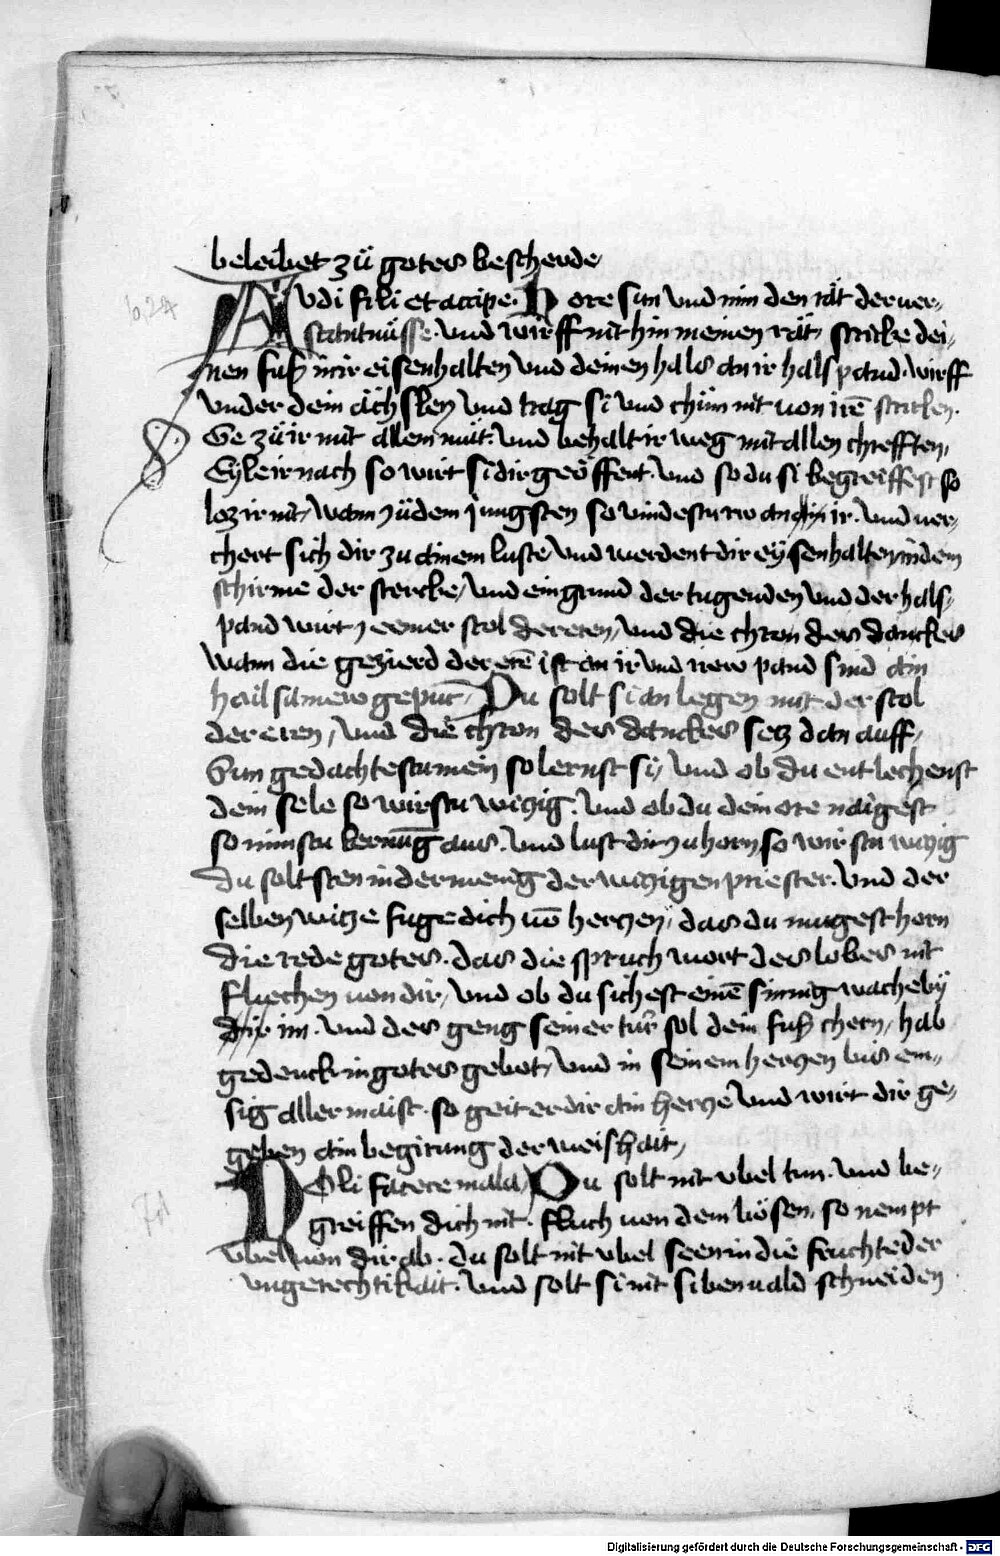 beleibet zü gotes bescherde
6,24
Avdi fili et accipe. Hore sun vnd nim den rät der ver-
stantnüsse. vnd wirff nit hin meinen rät, stricke dei-
nen fuß in ir eisenhalten vnd deinen hals an ir halspand. wirff
vnder dein ächslen vnd trag si vnd chüm nit von irē stricken.
Ge zü ir mit allem müt. vnd behalt ir weg mit allen chrefften,
Eyle ir nach so wirt si dir geöffent. vnd so du si begreiffest so
loz ir nit, wann zü dem jungsten so vindestu rw an ir. vnd ver-
chert sich dir zu ainem luste, vnd werdent dir eysenhalten in dem
schirme der stercke, vnd ein grund der tugenden vnd der hals-
pand wirt zeemer stol der eren, vnd die chron des danckes
wann die gezierd der erē ist an ir vnd irew pand sind ain
hailsamew geput, Du solt si an legen mit der stol
der eren, vnd die chron des danckes setz dan auff,
Sun gedachtestu mein so lernst si, vnd ob du entlechenst
dein sele so wirstu witzig. vnd ob du dein ore naigest
so nimstu vernūg aus. vnd lust dir zu horn so wirstu witzig
du solt sten in der menig der witzigen priester. vnd der
selben witze fuge dich vō hertzen, das du mugest horn
die rede gotes. das die spruch wort des lobes nit
fliechen von dir, vnd ob du sichest einē sinnig wache by
im. vnd des geng seiner tür sol dein fuß chern, hab
gedenck in gotes gebot, vnd in seinem hertzen bis em-
sig aller maist. so geit er dir ain hertze vnd wirt dir ge-
geben ain begirung der weishait,
7,1
Noli facere mala, Du solt nit vbel tun. vnd be-
greiffen dich nit. fluch von dem bösen. so nempt
vbel von dir ab. du solt nit vbel seen in die fruchte der
vngerechtikait. vnd solt si nit sibenuald schneiden
Digitalisierung gefördert durch die Deutsche Forschungsgemeinschaft - DFG